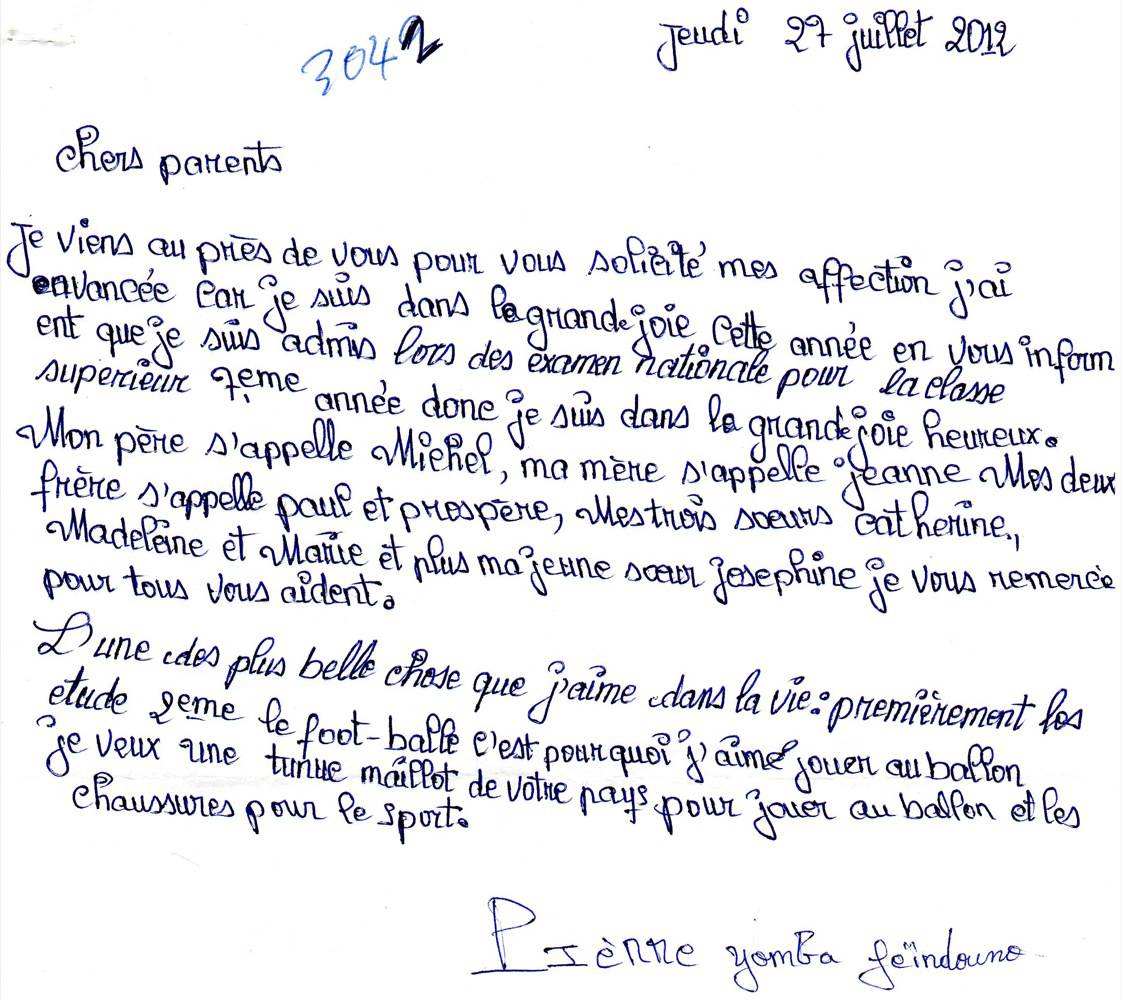 3042
Jeudi 27 juillet 2012
chers parents
Je viens au près de vous pour vous solicité mes affection j'ai
envancée car je suis dans la grande joie cette année en vous inform
ent que je suis admis lors des examen nationale pour la classe
superieur 7eme année donc je suis dans la grande joie heureux.
Mon père s'appelle Michel, ma mère s'appelle jeanne Mes deux
frère s'appelle paul et prospère, Mes trois sœurs catherine,
Madeleine et Marie et plus ma jeune sœur josephine je vous remercie
pour tous vous aident.
D'une des plus belle chose que j'aime dans la vie: premièrement les
etude 2eme le foot-balle c'est pourquoi j'aime jouer au ballon
je veux une tunue maillot de votre pays pour jouer au ballon et les
chaussures pour le sport.
Pièrre yomba feindouno